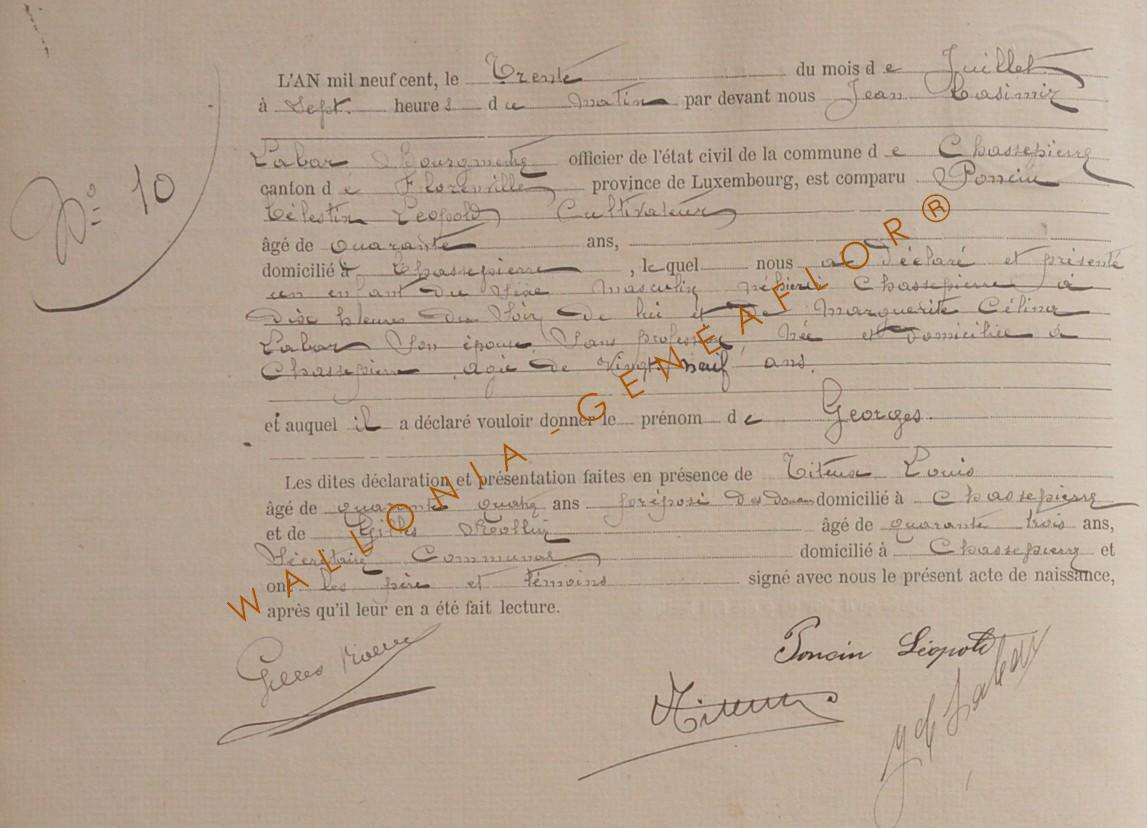 L'AN mil neuf cent, le Trente du mois de Juillet
à Sept heures du matin par devant nous Jean Casimir
N° 10
Labar Bourgmestre officier de l'état civil de la commune de Chassepierre
canton de Florenville province de Luxembourg, est comparu Poncin
Célestin Leopold Cultivateur
âgé de quarante ans,
domicilié à Chassepierre, lequel nous a déclaré et présenté
un enfant du sexe masculin né hier à Chassepierre à
dix heures du soir de lui et de Marguerite Célina
Labar son épouse sans profession née et domiciliée à
Chassepierre agée de vingt neuf ans.
et auquel il a déclaré vouloir donner le prénom de Georges.
Les dites déclaration et présentation faites en présence de Titeux Louis
âgé de quarante quatre ans préposé des douanes domicilié à Chassepierre
et de Gilles âgé de quarante trois ans,
Secrétaire Communal domicilié à Chassepierre et
ont les père et témoins signé avec nous le présent acte de naissance,
après qu'il leur en a été fait lecture.
Gilles
Poncin Léopold
Titeux
Labar
WALLONIA-GENEAFLOR®